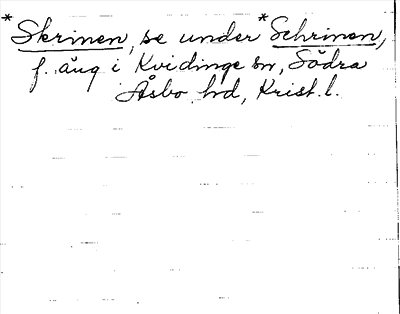 *Skrinen, se under *Schrinen,
f. äng i Kvidinge sn, Södra
Åsbo hd, Krist. l.